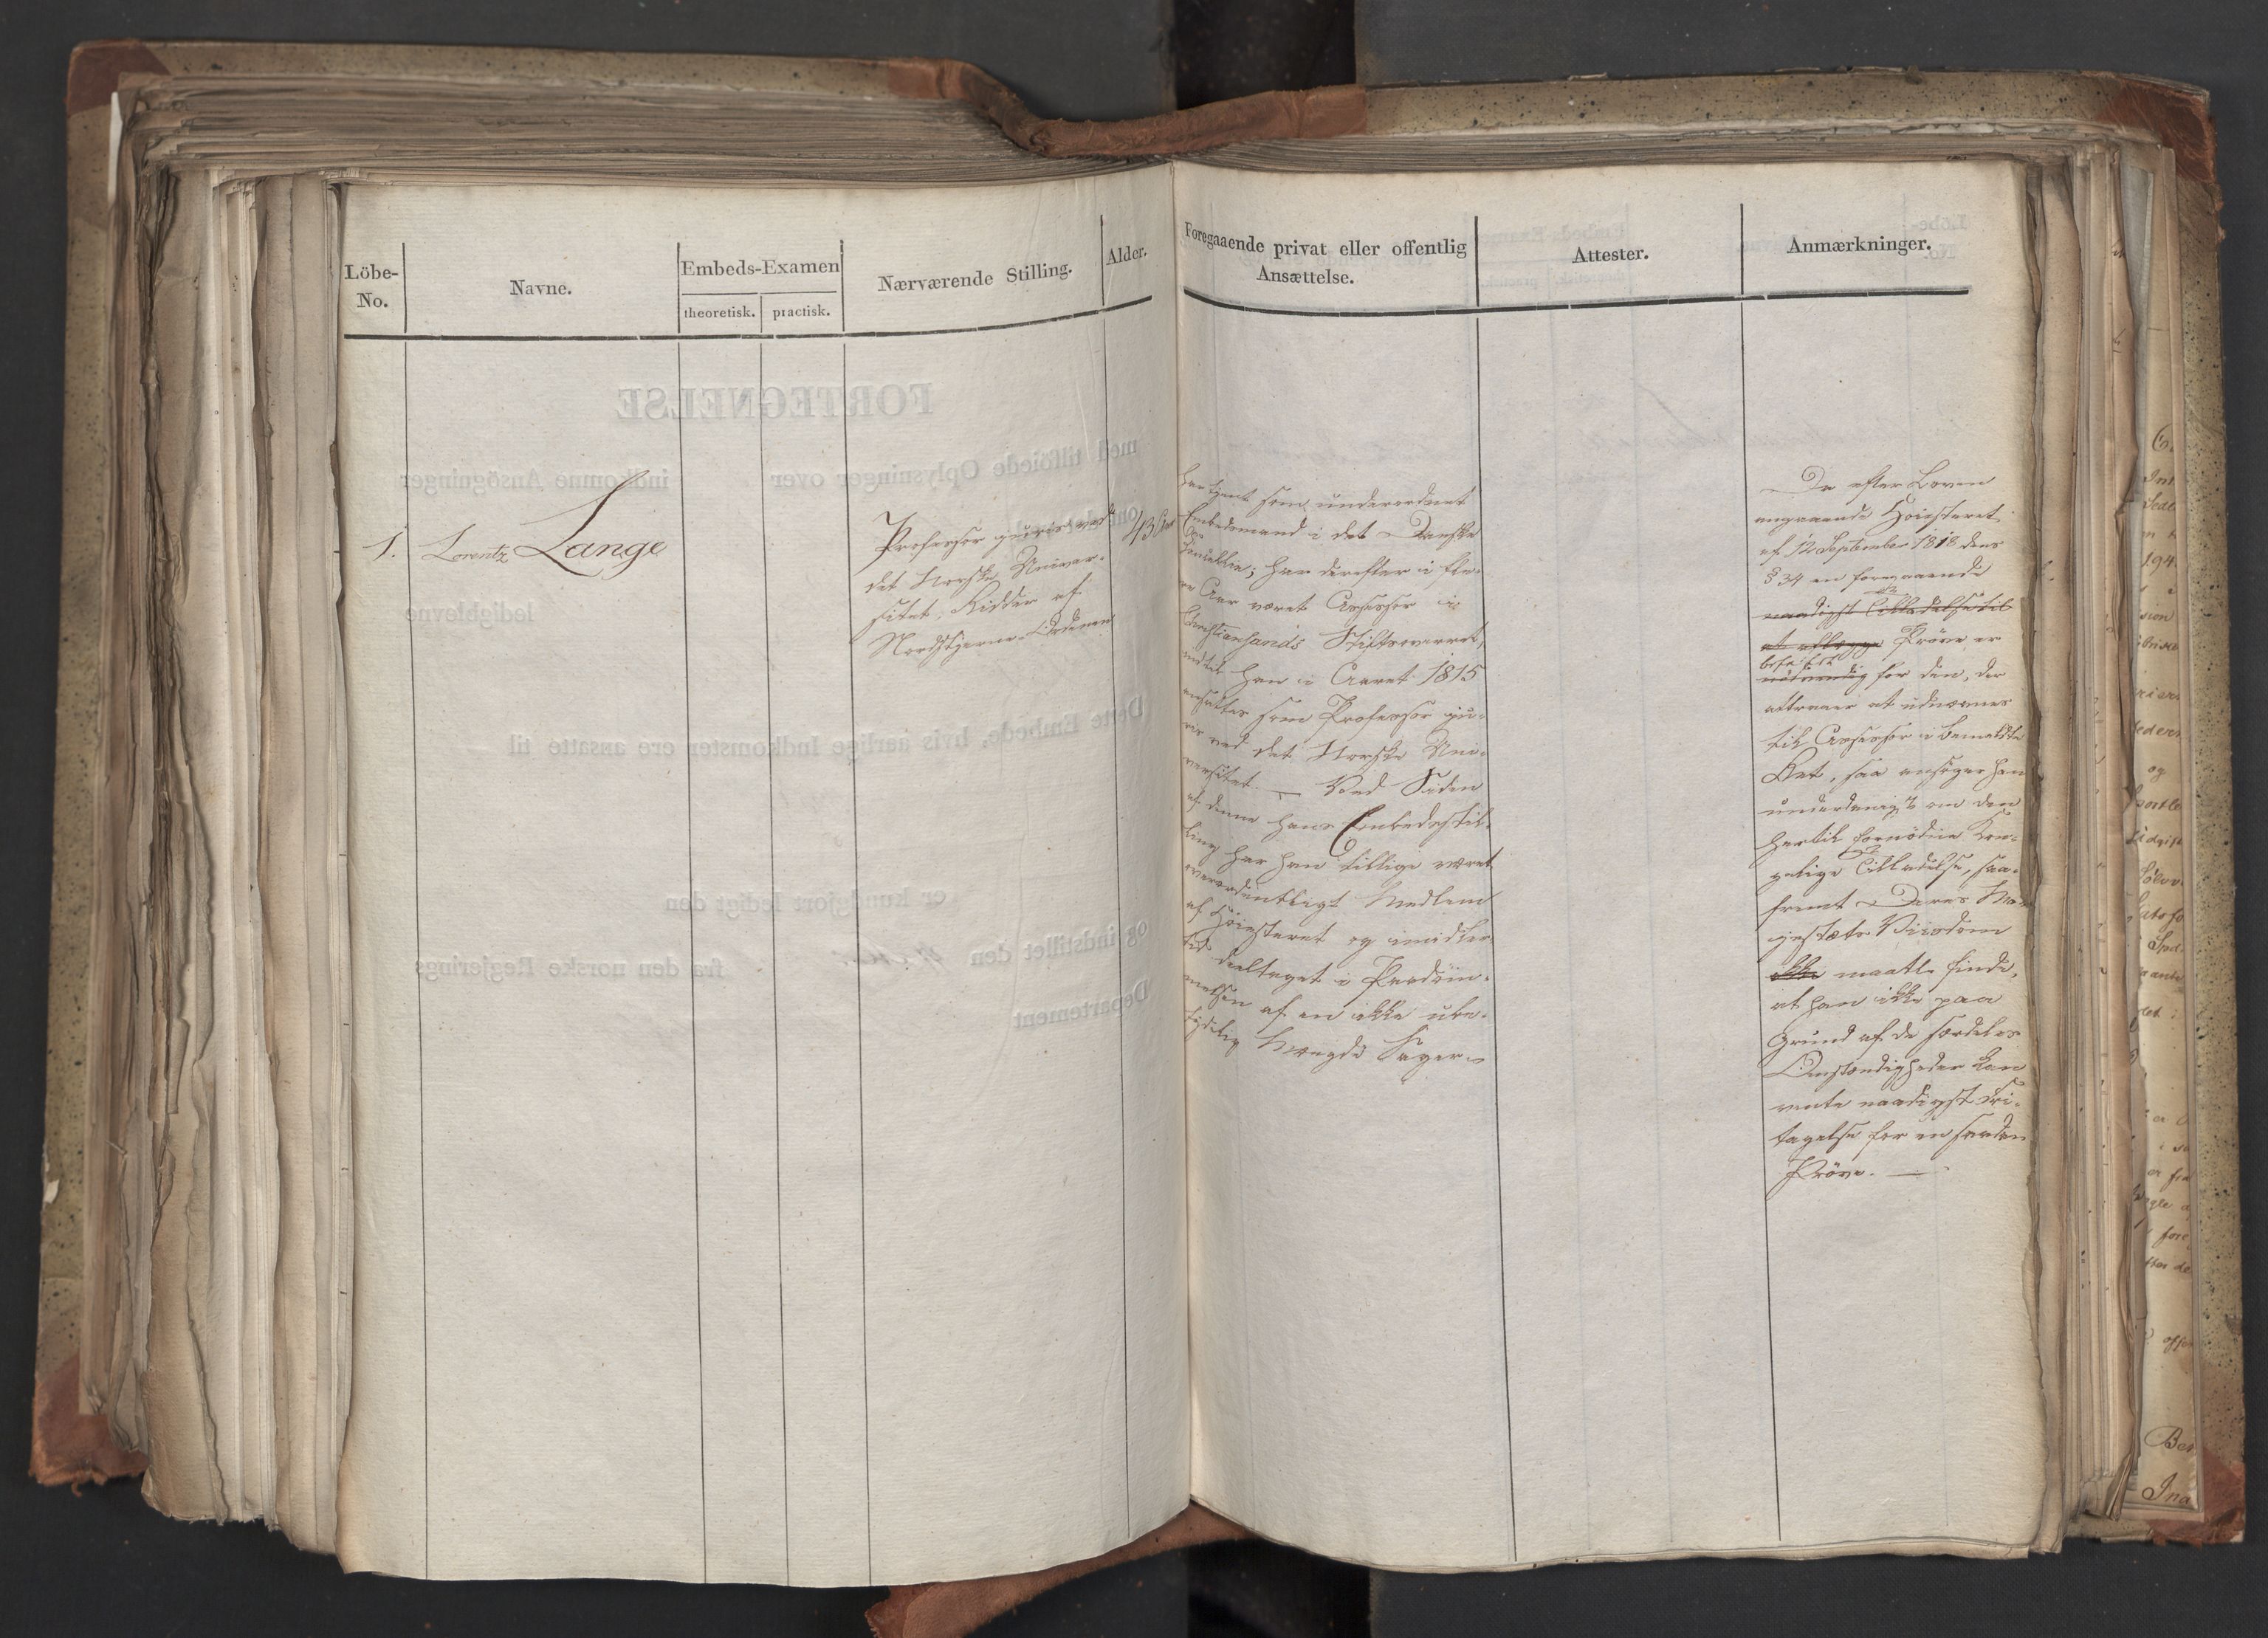 Löbe-
No.
Navne.
Embeds-Examen
theoretisk.
practisk.
Nærværende Stilling.
Alder.
Foregaaende privat eller offentlig
Ansættelse.
Attester.
Anmærkninger.
1.
Lorentz Lange
Professor juris ved
det Norske Univer-
sitet, Ridder af
Nordstjerne-Ordenen
43 Aar
har tjent som underordnet
Embedsmand i det Danske
Cancellie; har derefter i fle-
re Aar været Assessor i
Christiansands Stiftsoverret,
indtil han i Aaret 1815
ansattes som Professor ju-
ris ved det Norske Uni-
versitet. — Ved Siden
af denne hans Embedsstil-
ling har han tillige været
overordentligt Medlem
af Höiesteret og imidler-
tid deeltaget i Paadöm-
melsen af en ikke ube-
tydelig Mængde Sager.
Da efter Loven
angaaende Höiesteret
af 12 September 1818 dens
§ 34 en foregaaende
naadigst Tilladelse til
at aflægge Pröve er
befalet
nödvendig for den, der
attraaer at udnævnes
til Assessor i bemeldte
Ret, saa ansöger han
underdanigst om den
hertil fornödne Kon-
gelige Tilladelse, saa-
fremt Deres Ma-
jestæts Viisdom
ikke maatte finde,
at han ikke paa
Grund af de særdeles
Omstændigheder kan
vente naadigst Fri-
tagelse for en saadan
Pröve. —